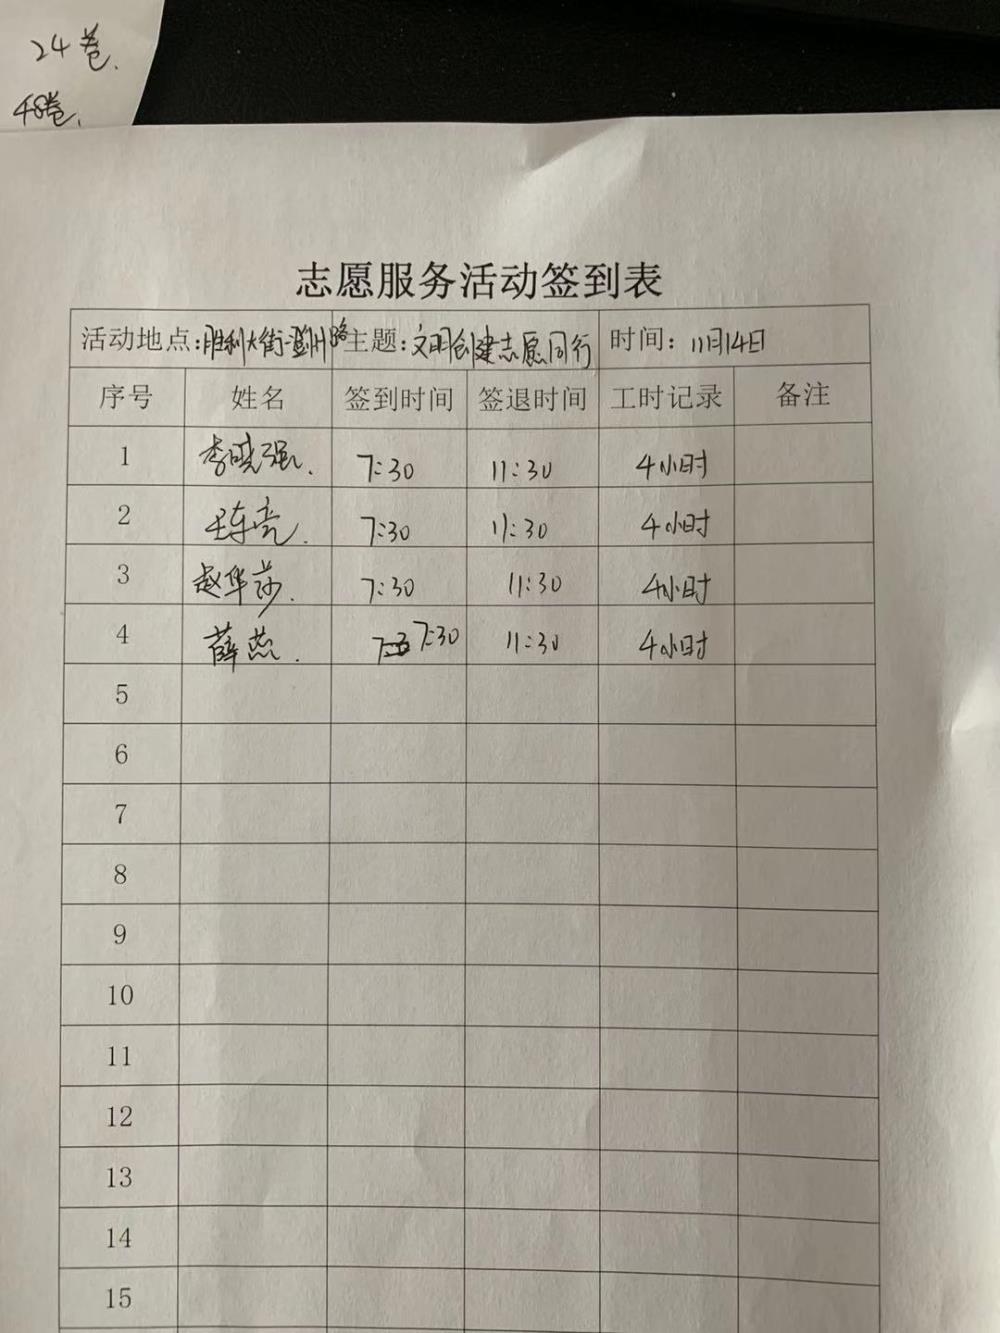 24卷.
48卷.
志愿服务活动签到表
活动地点:胜利大街- 路 主题:文明创建志愿同行 时间: 11月14日
序号 姓名 签到时间 签退时间 工时记录 备注
1 李晓强. 7:30 11:30 4小时
2 王东亮. 7:30 11:30 4小时
3 赵华莎. 7:30 11:30 4小时
4 薛燕. 7:30 11:30 4小时
5
6
7
8
9
10
11
12
13
14
15